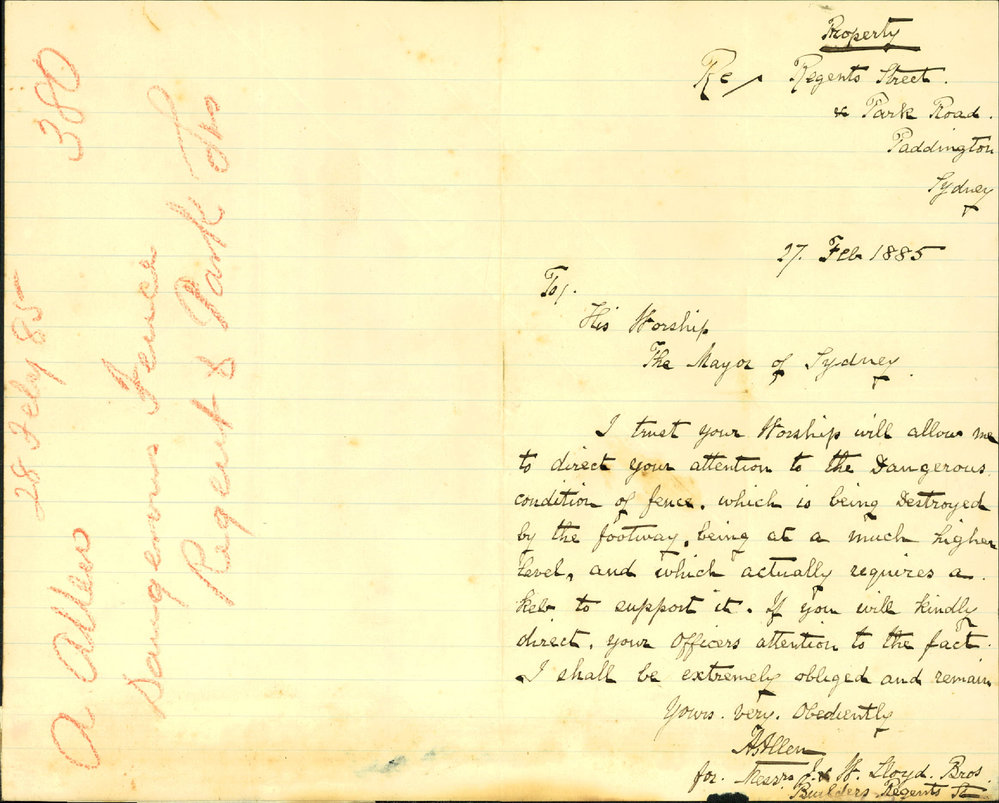 380
28 Feby 85
A Allen
Dangerous Fence
Regent & Park Sts
Property
Re/ Regents Street.
& Park Road.
Paddington
Sydney
27. Feb 1885
To/.
His Worship
The Mayor of Sydney.
I trust your Worship will allow me
to direct your attention to the Dangerous
condition of fence. which is being Destroyed
by the footway, being at a much higher
Level, and which actually requires a.
Keb to support it. If you will kindly
direct. your Officers attention to the fact.
I shall be extremely obliged and remain
Yours. very. Obediently
A Allen
for. Messrs J. & W. Lloyd. Bros.
Builders Regents St